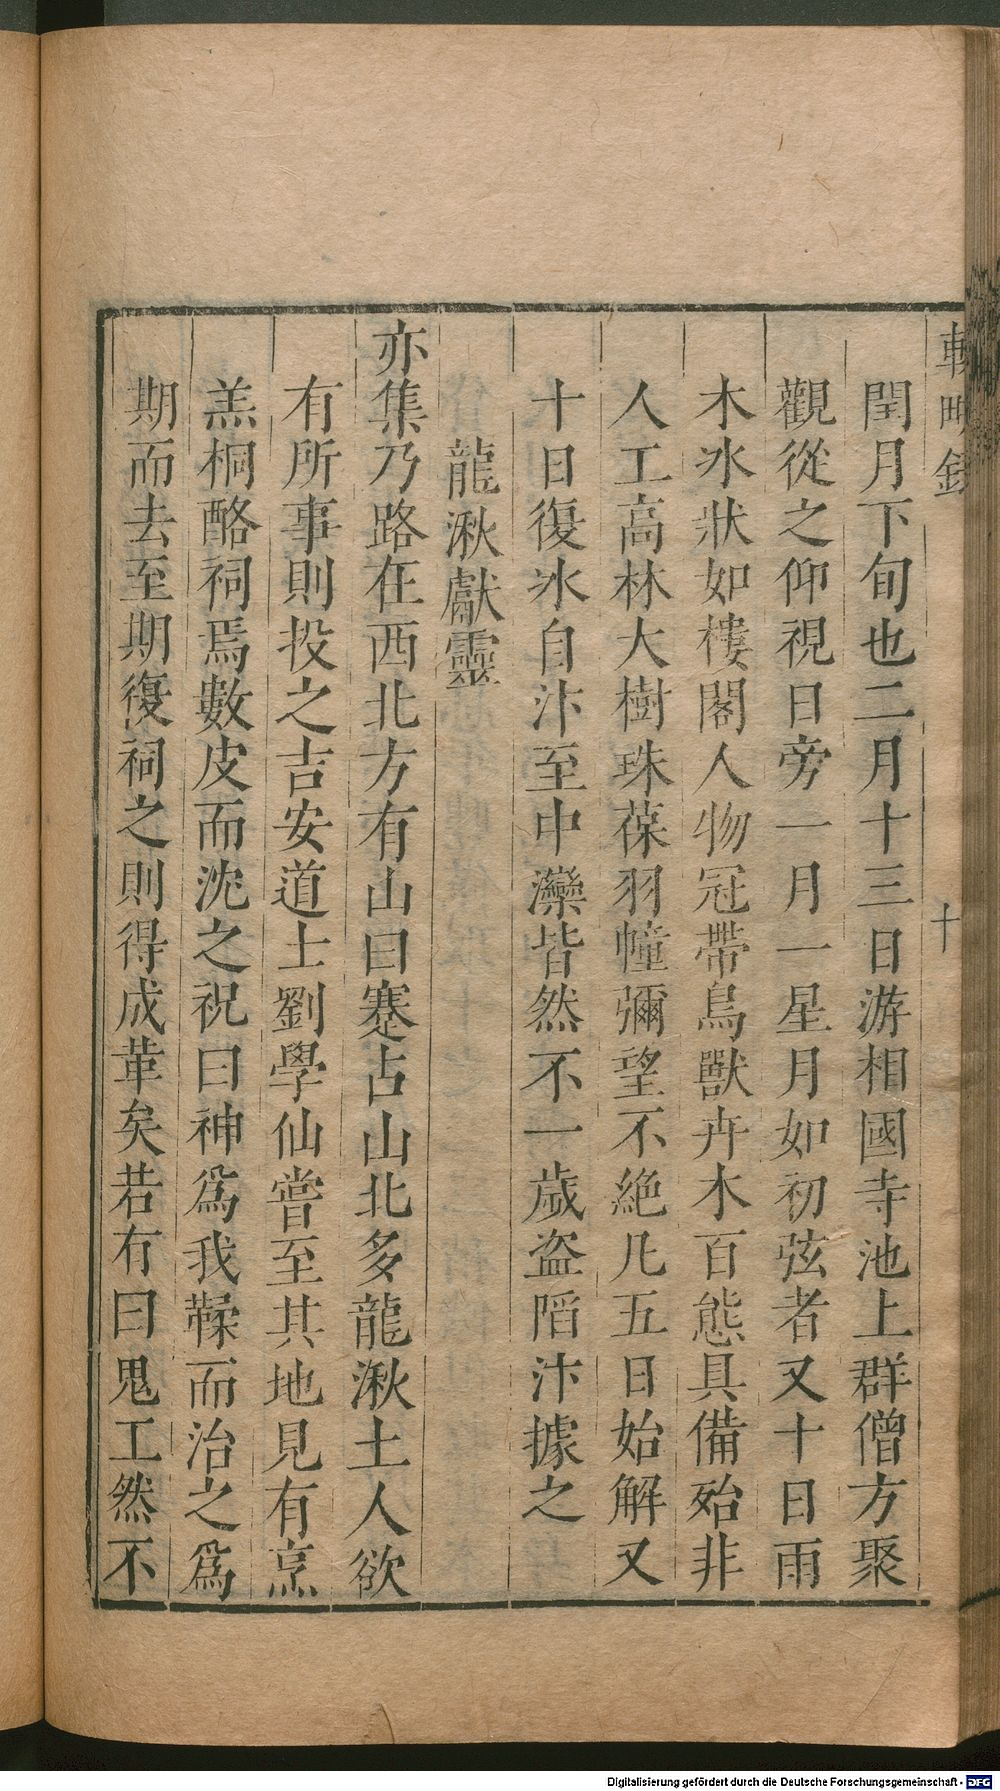 閏月下旬也二月十三日游相國寺池上群僧方聚
觀從之仰視日旁一月一星月如初弦者又十日雨
木氷狀如樓閣人物冠帶鳥獸卉木百態具備殆非
人工高林大樹珠葆羽幢彌望不絕凡五日始解又
十日復氷自汴至中灤皆然不一歲盜陷汴據之
龍湫獻靈
亦集乃路在西北方有山曰蹇占山北多龍湫土人欲
有所事則投之吉安道士劉學仙嘗至其地見有烹
羔桐酪祠焉數皮而沈之祝曰神爲我鞣而治之爲
期而去至期復祠之則得成革矣若有曰鬼工然不
十
Digitalisierung gefördert durch die Deutsche Forschungsgemeinschaft - DFG